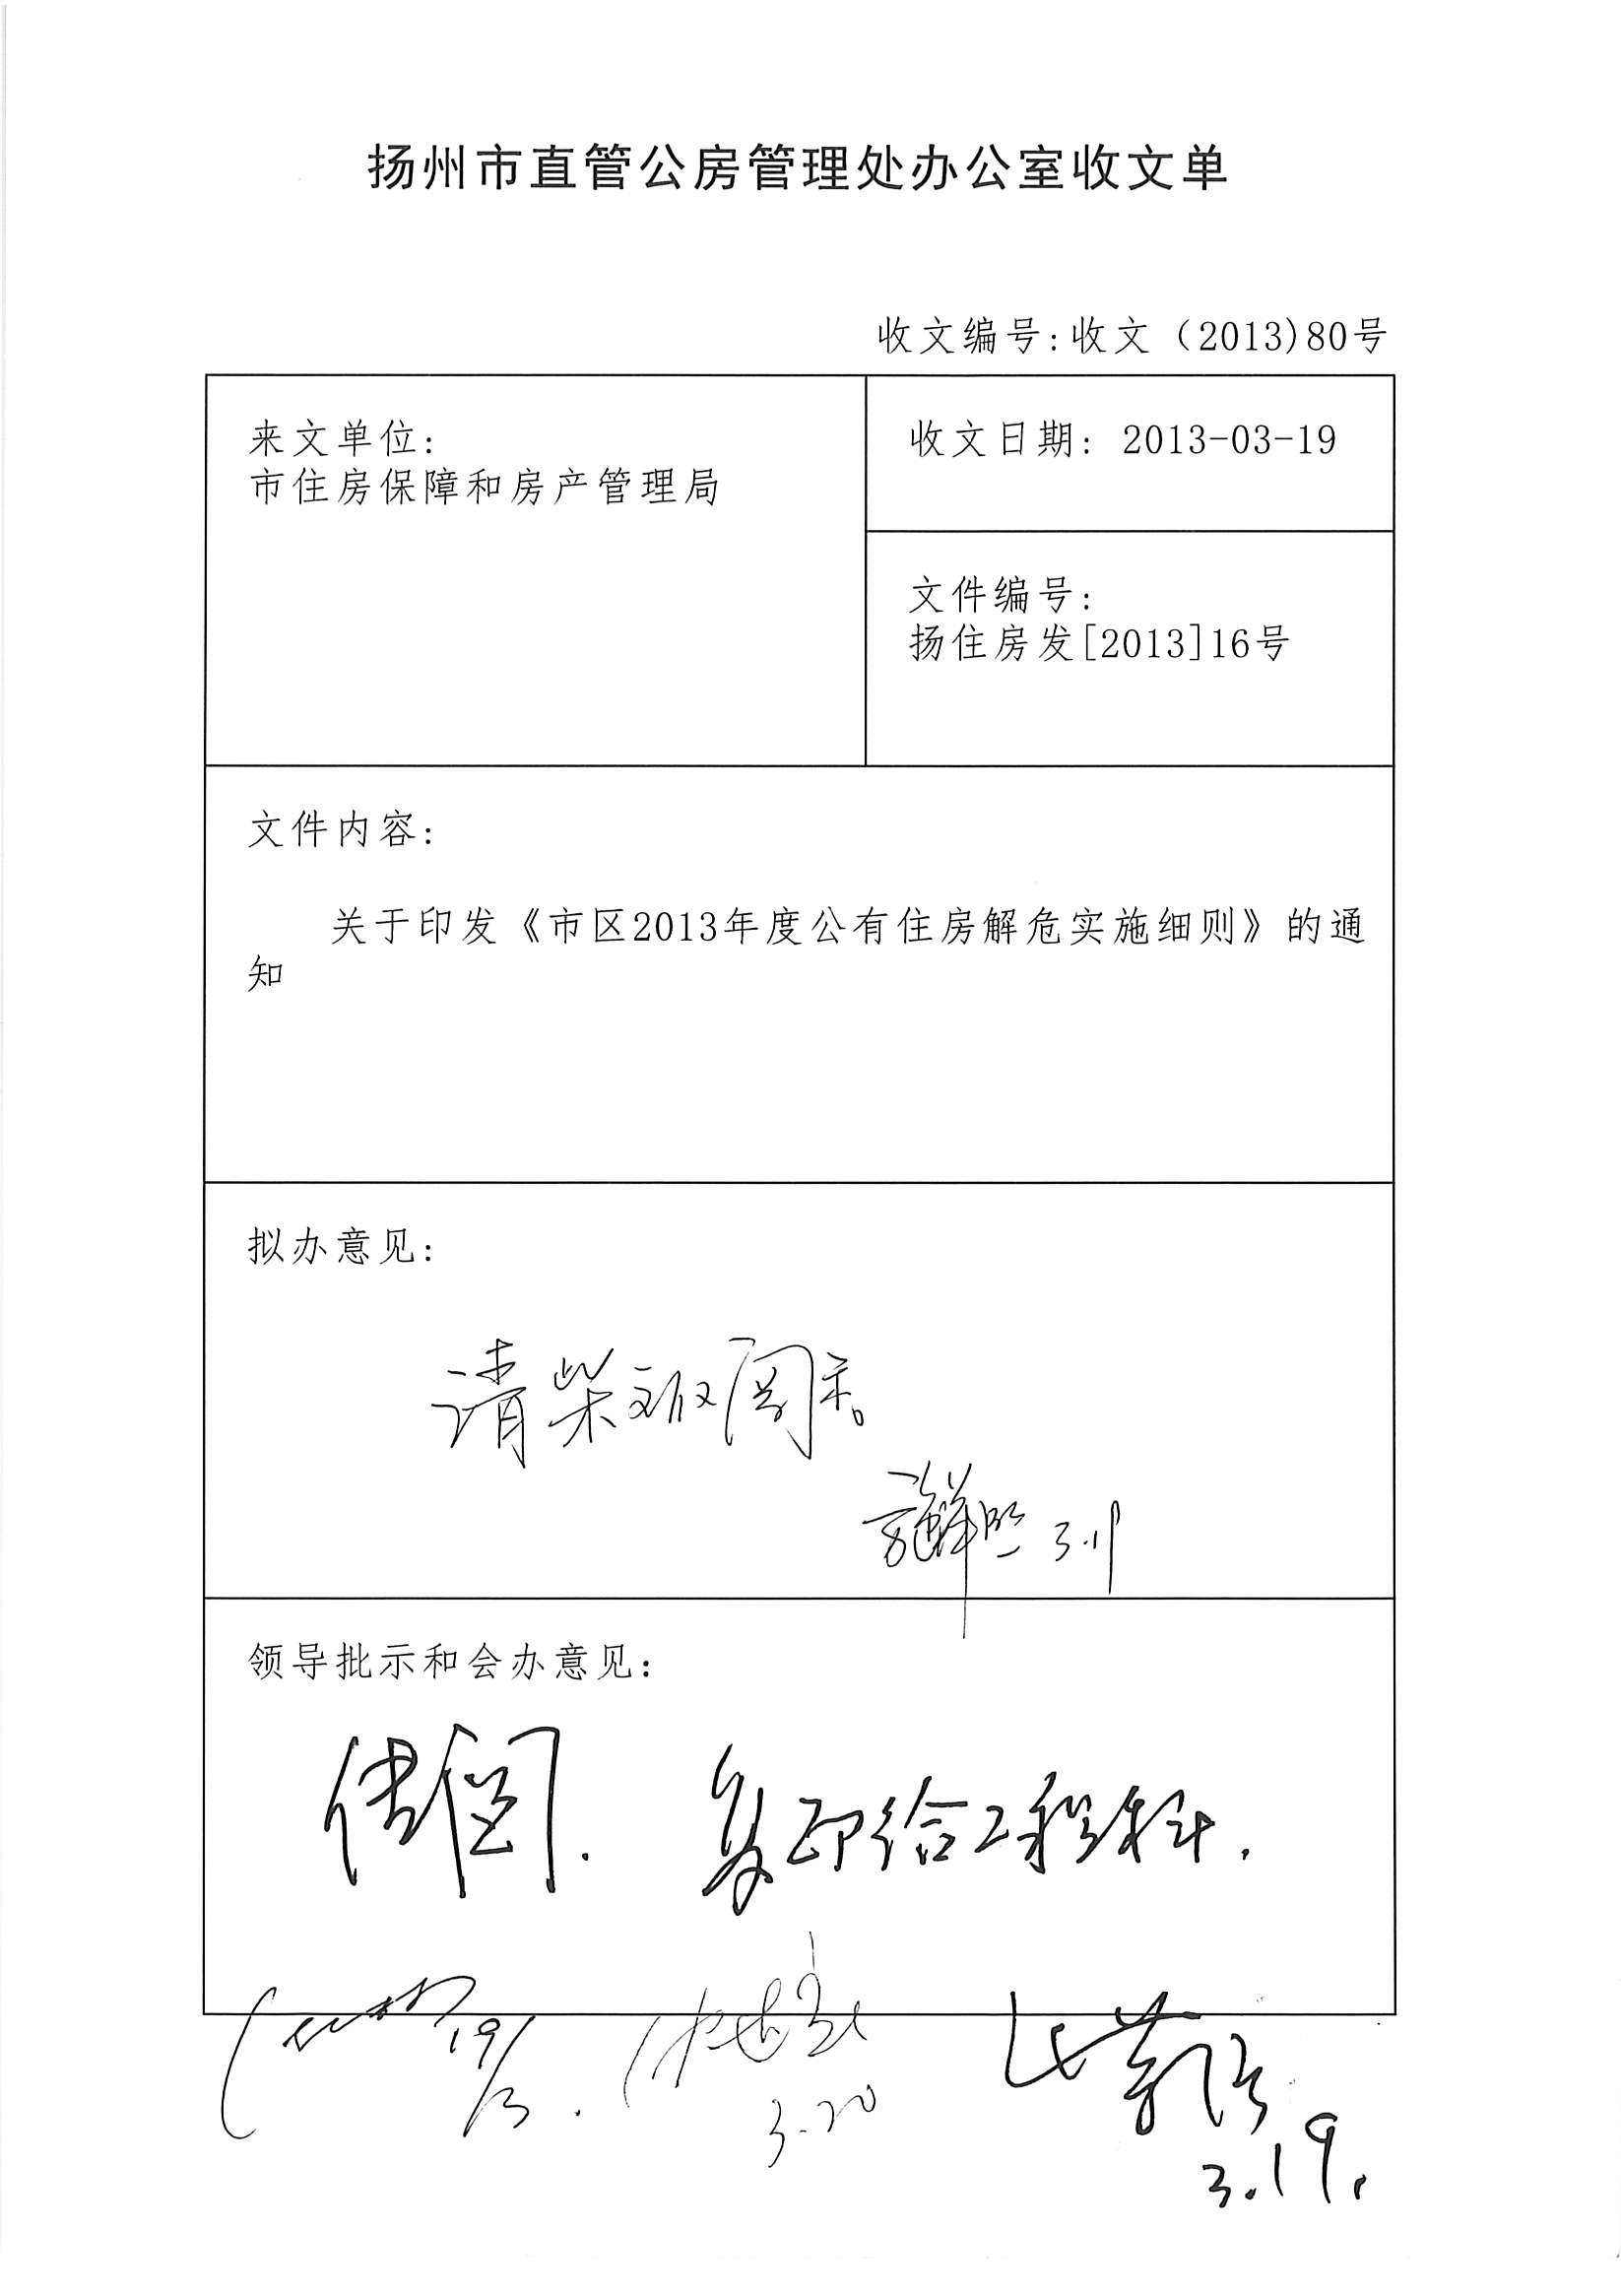 扬州市直管公房管理处办公室收文单
收文编号:收文（2013)80号
来文单位:
市住房保障和房产管理局
收文日期: 2013-03-19
文件编号:
扬住房发[2013]16号
文件内容:
关于印发《市区2013年度公有住房解危实施细则》的通
知
拟办意见:
请柴 阅示。
3.19
领导批示和会办意见:
传阅. 复印给工程科.
19/3.
3.20
3.19.